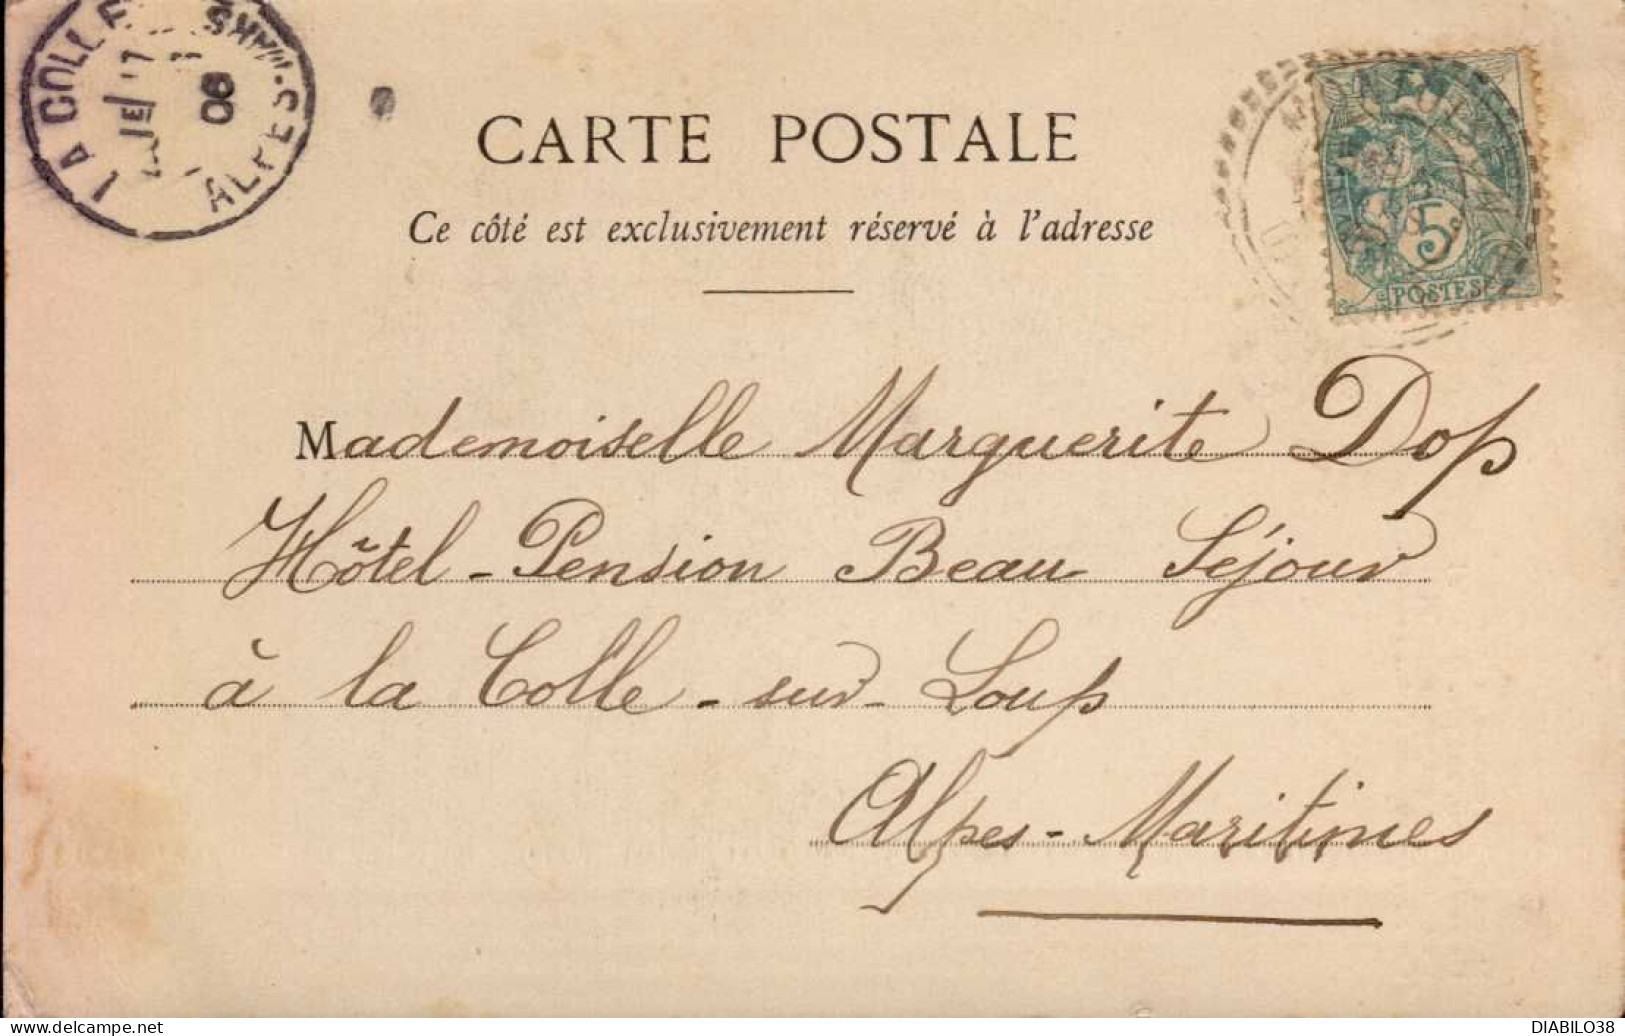 LA COLLE
MARS
06
ALPES
CARTE POSTALE
Ce côté est exclusivement réservé à l'adresse
5c
POSTES
Mademoiselle Marguerite Dop
Hôtel-Pension Beau Séjour
à la Colle-sur-Loup
Alpes-Maritimes
DIABILO38